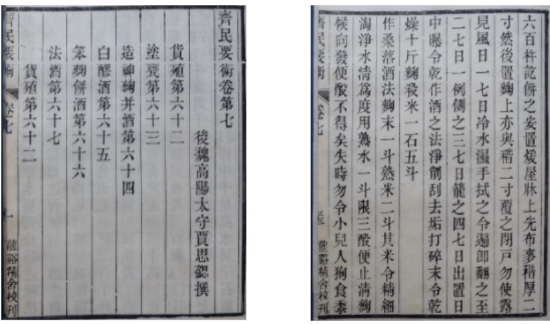 齊民要術卷第七
後魏高陽太守賈思勰撰
貨殖第六十二
塗甕第六十三
造神麴并酒第六十四
白醪酒第六十五
笨麴餅酒第六十六
法酒第六十七
貨殖第六十二
齊民要術 卷七 一 龍谿精舍校刊
六百杵訖餅之安置煖屋牀上先布麥稭厚二
寸然後置麴上亦與稭二寸覆之閉戶勿使露
見風日一七日冷水濕手拭之令遍卽翻之至
二七日一例側之三七日籠之四七日出置日
中曝令乾作酒之法淨削刮去垢打碎末令乾
燥十斤麴殺米一石五斗
作桑落酒法麴末一斗熟米二斗其米令精細
淘淨水清爲度用熟水一斗限三酘便止漬麴
候向發便酘不得矣失時勿令小兒人狗食黍
齊民要術 卷七 龍谿精舍校刊